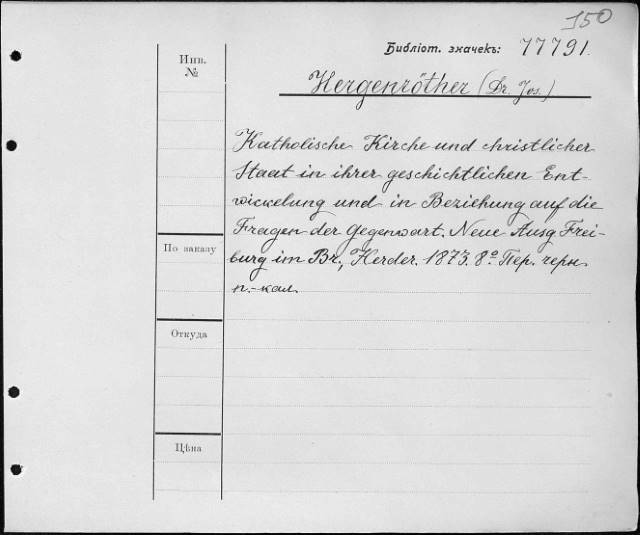 150
Библіот. значекъ: 77791.
Инв.
№
Hergenröther (Dr. Jos.)
Katholische Kirche und christlicher
Staat in ihrer geschichtlichen Ent-
wickelung und in Beziehung auf die
Fragen der Gegenwart. Neue Ausg Frei-
burg im Br., Herder. 1873. 8º Пер. черн
п.-кал.
По заказу
Откуда
Цѣна